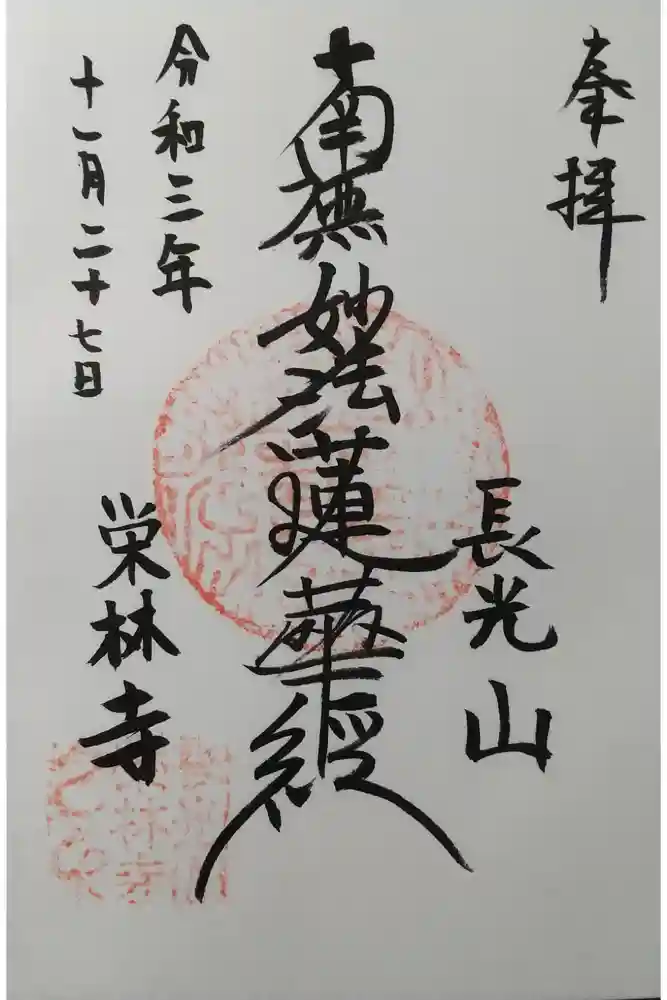 奉拝
長光山
南無妙法蓮華経
令和三年
十一月二十七日
栄林寺